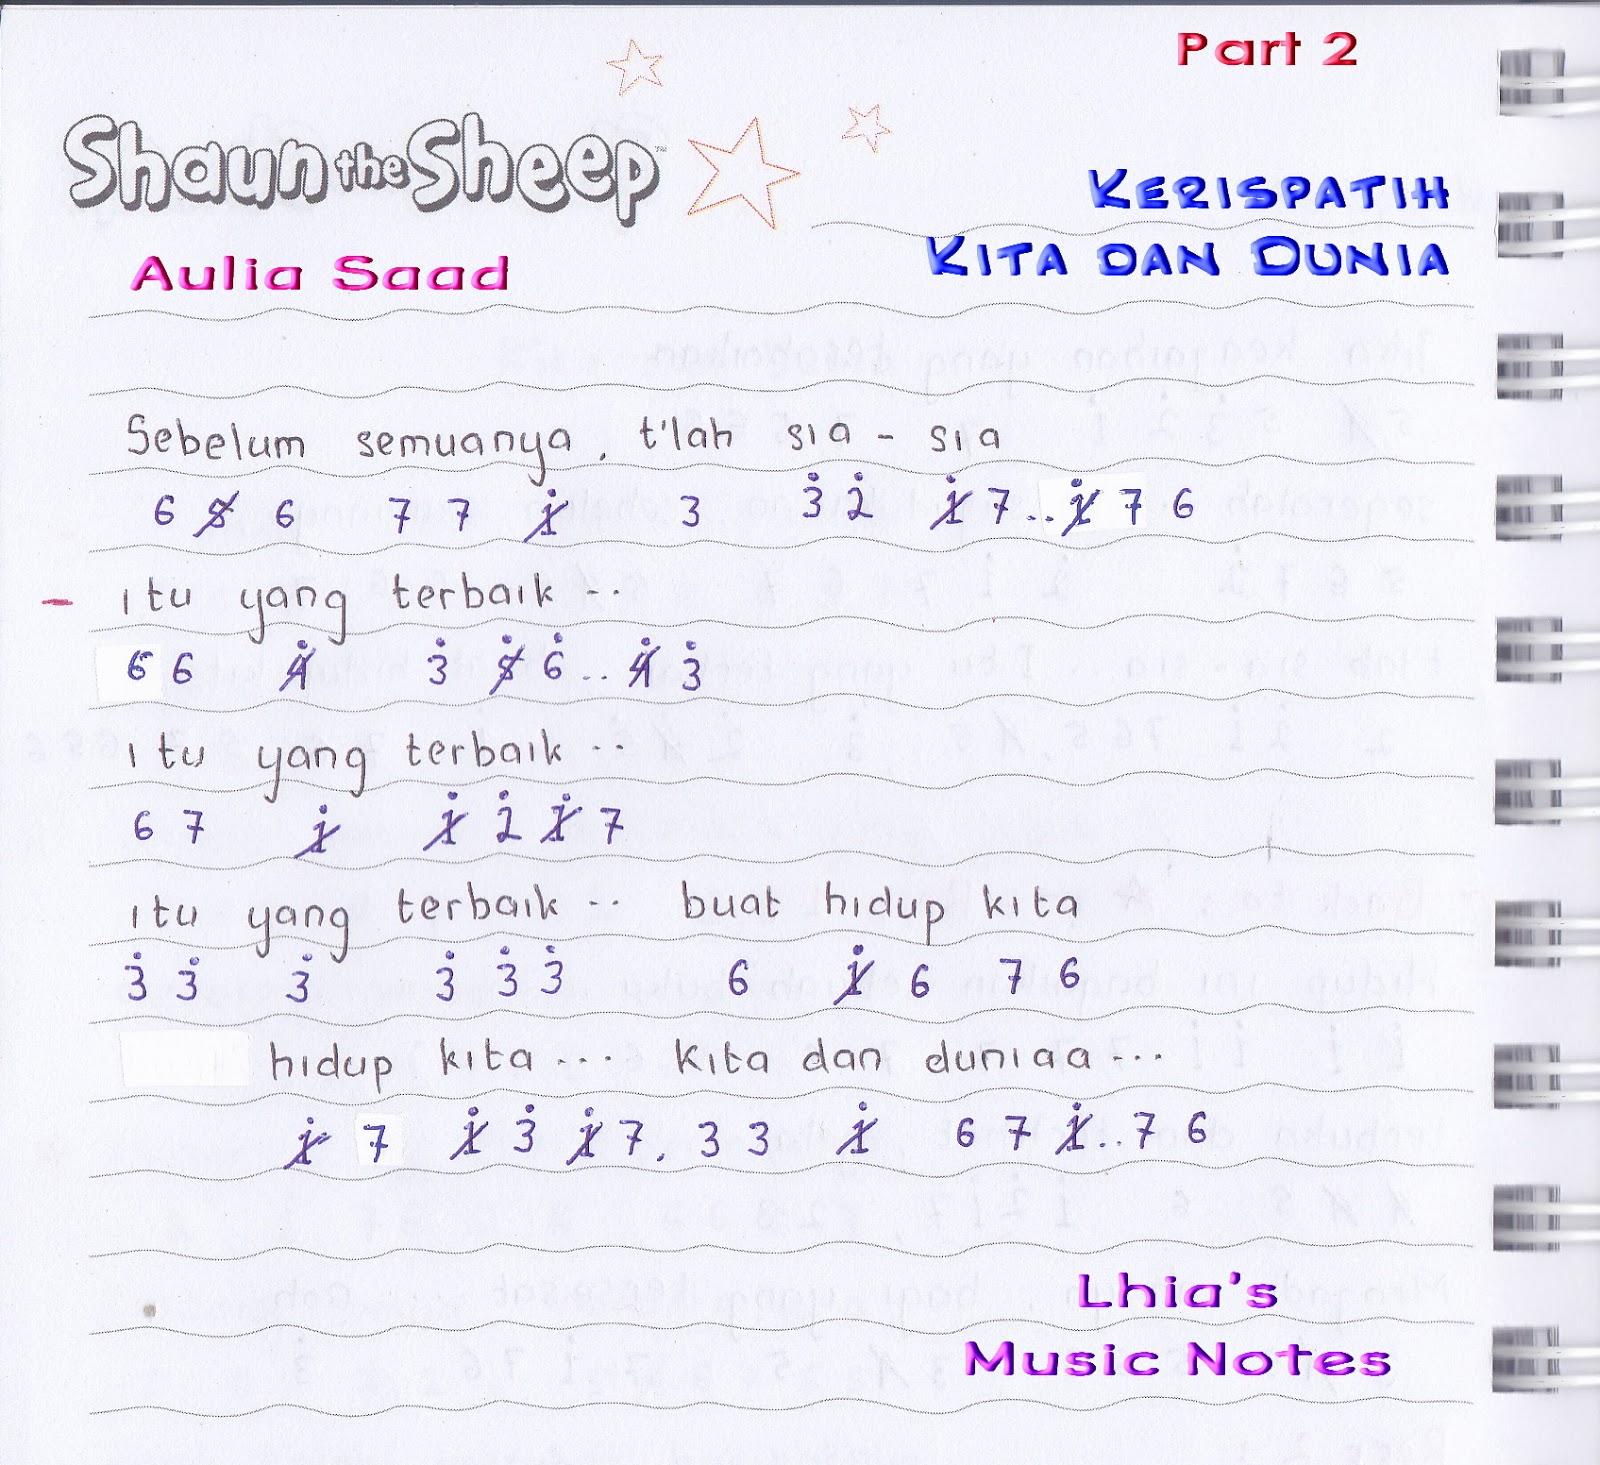 Part 2
Shaun the Sheep™
KERISPATIH
KITA DAN DUNIA
Aulia Saad
Sebelum semuanya, t'lah sia - sia
6 5̸ 6 7 7 1̸̇ 3 3̇ 2̇ 1̸̇ 7..1̸̇ 7 6
- itu yang terbaik ..
6 6 4̸̇ 3̇ 5̸̇ 6̇..4̸̇ 3̇
itu yang terbaik ..
6 7 1̸̇ 1̸̇ 2̇ 1̸̇ 7
itu yang terbaik .. buat hidup kita
3̇ 3̇ 3̇ 3̇ 3̇ 3̇ 6 1̸̇ 6 7 6
hidup kita ... kita dan duniaa ...
1̸̇ 7 1̸̇ 3̇ 1̸̇ 7, 3 3 1̸̇ 6 7 1̸̇..7 6
Lhia's
Music Notes